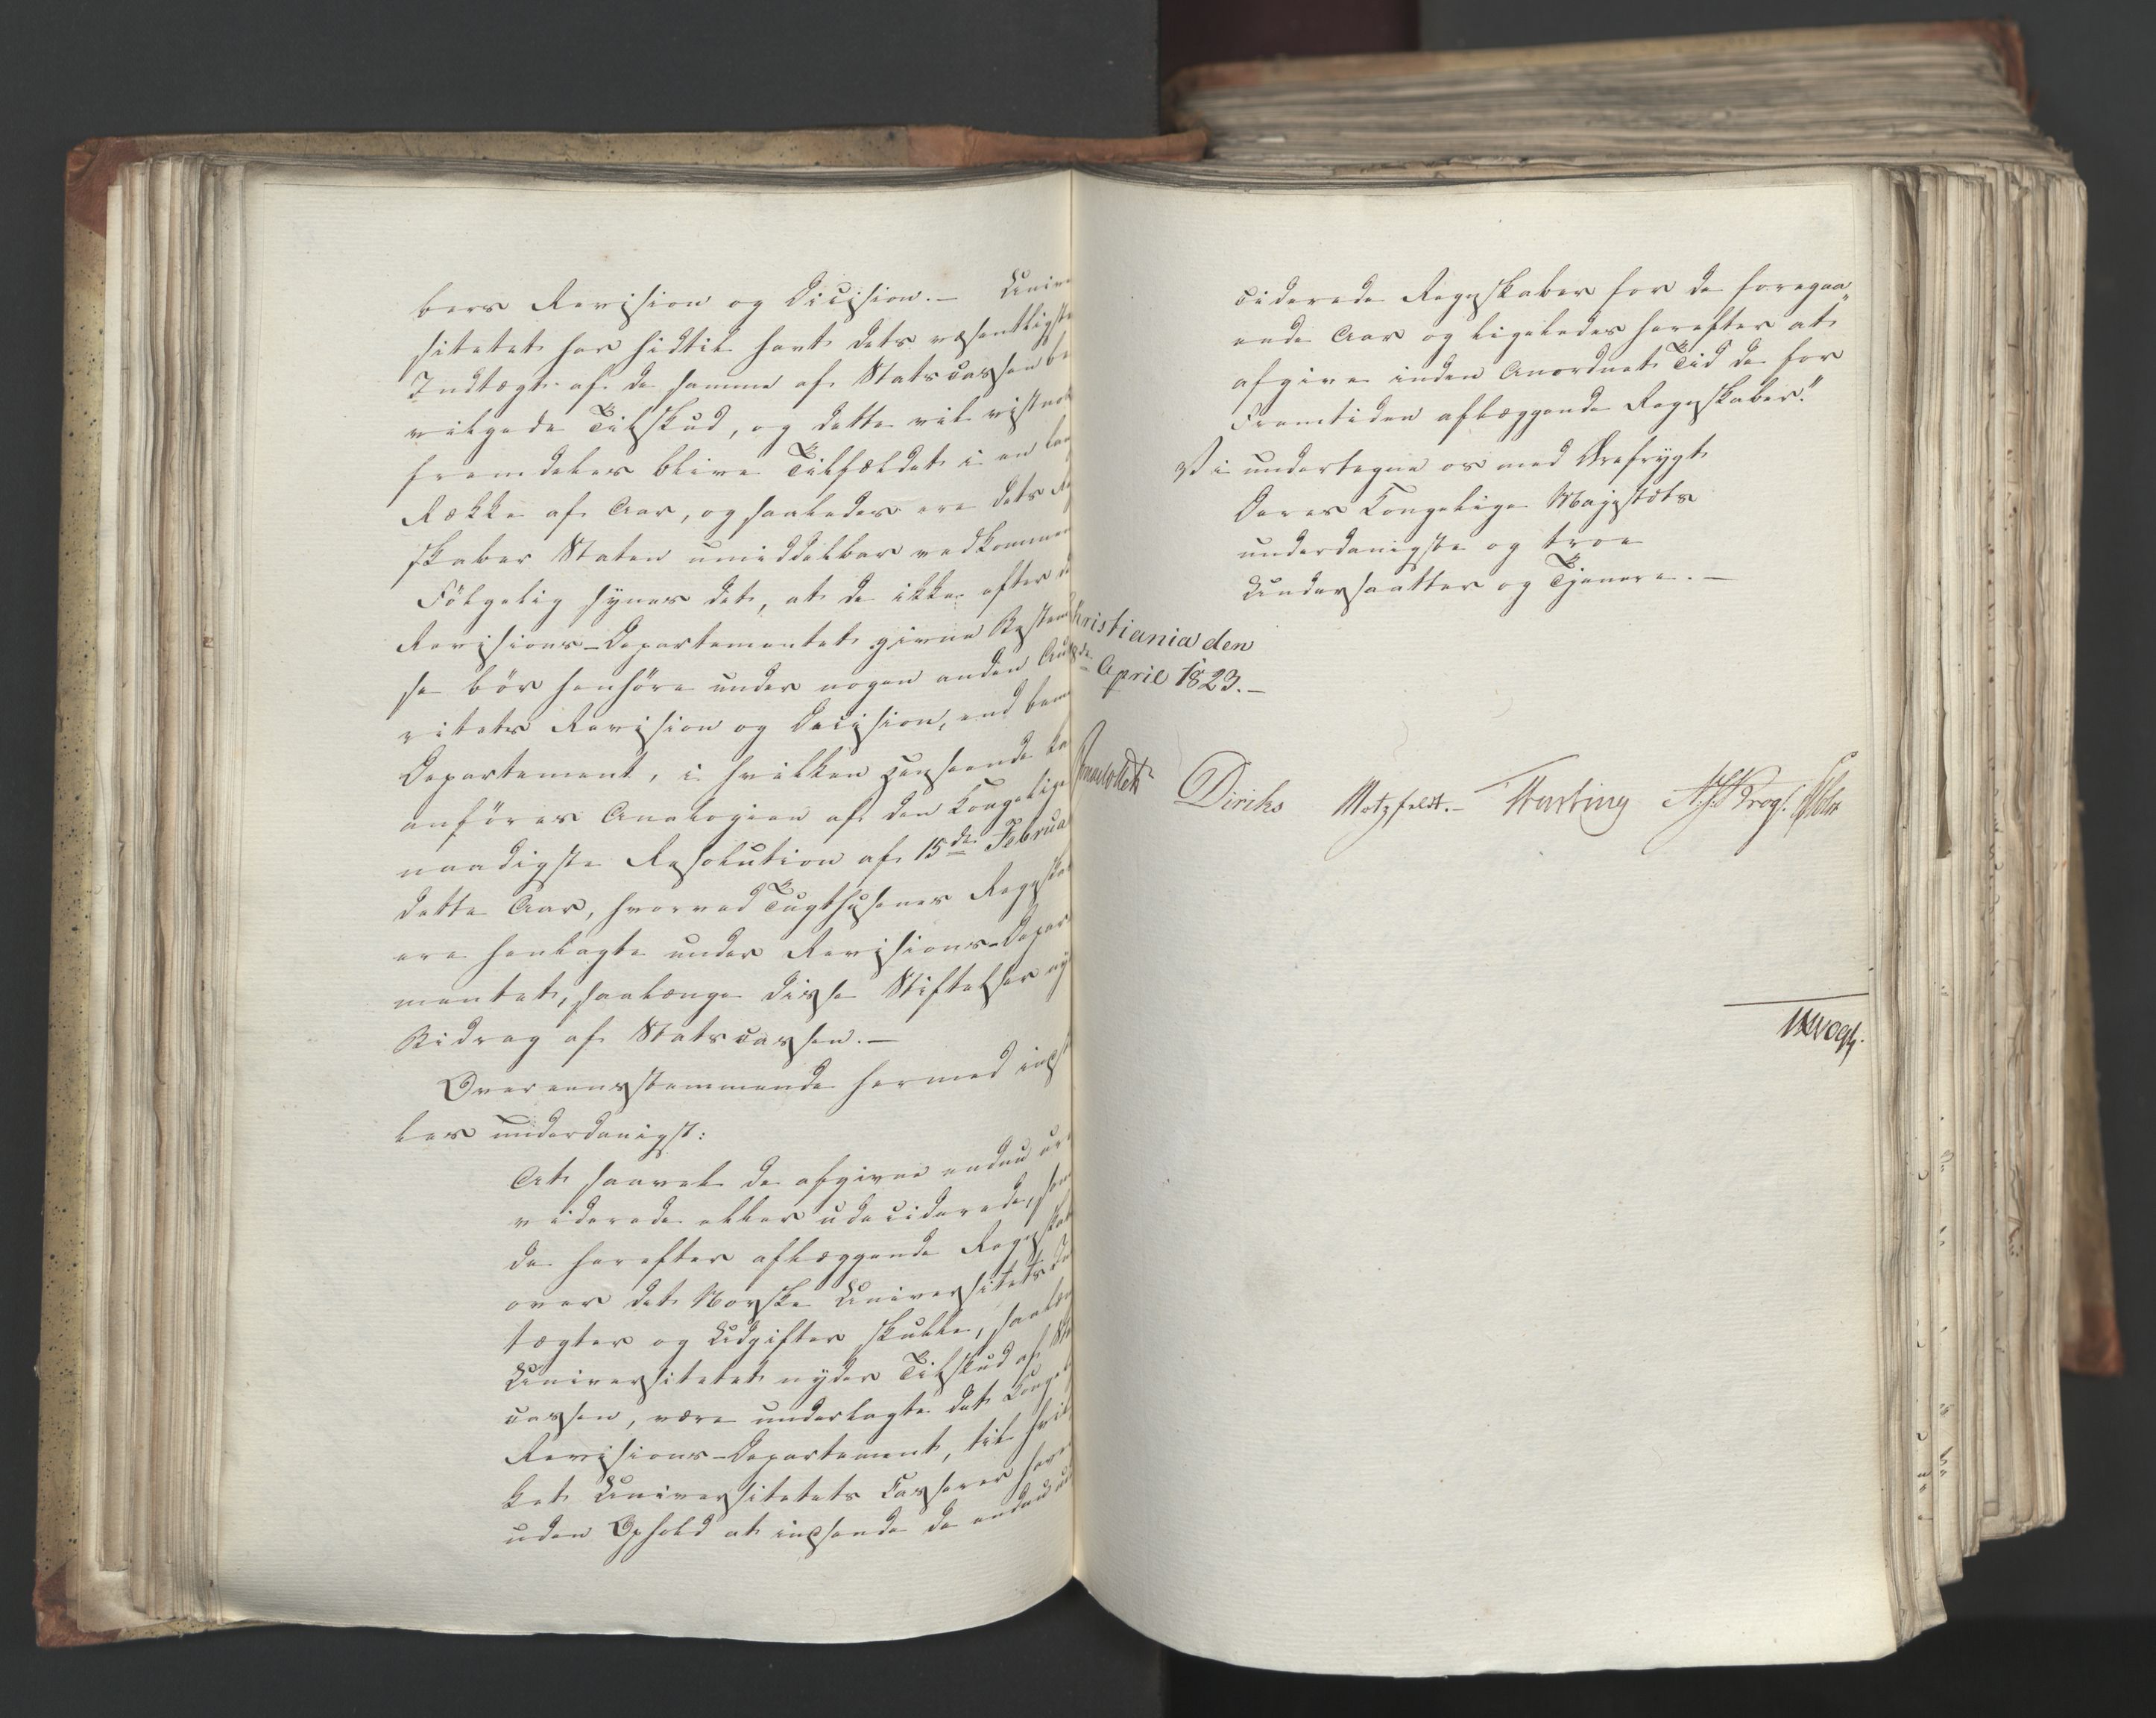 bers Revision og Decision. — Unive
sitetet har hidtil havt dets væsentligste
Indtægt af de samme af Statscassen be
vilgede Tilskud, og dette vil vistnok
fremdeles blive Tilfældet i en lang
Række af Aar, og saaledes ere dets Re
skaber Staten umiddelbar vedkommen
Følgelig synes det, at de ikke efter de
Revisions-Departementet givne Bestem
se bör henhöre under nogen anden Auto
ritets Revision og Decision, end bem
Departement, i hvilken Henseende ka
anföres Analogien af den Kongelige
naadigste Resolution af 15de Februa
dette Aar, hvorved Tugthusenes Regnska
ere henlagte under Revisions-Depar
mentet, saalænge disse Stiftelser ny
Bidrag af Statscassen. —
Overeensstemmende hermed indst
les underdanigst:
At saavel de afgivne endnu ure
viderede eller udeciderede, som
de herefter aflæggende Regnskab
over det Norske Universitets Ind
tægter og Udgifter skulle, saalæn
Universitetet nyder Tilskud af Sta
cassen, være underlagte det Kongel
Revisions-Departement, til hvil
ket Universitetets Casserer har
uden Ophold at indsende de endnu ude
ciderede Regnskaber for de foregaa„
ende Aar og ligeledes herefter at
afgive inden Anordnet Tid de for
Fremtiden aflæggende Regnskaber."
Vi undertegne os med Ærefrygt
Deres Kongelige Majestæts
underdanigste og troe
Undersaatter og Tjenere. —
hristiania den
de April 1823. —
Diriks Motzfeldt. —